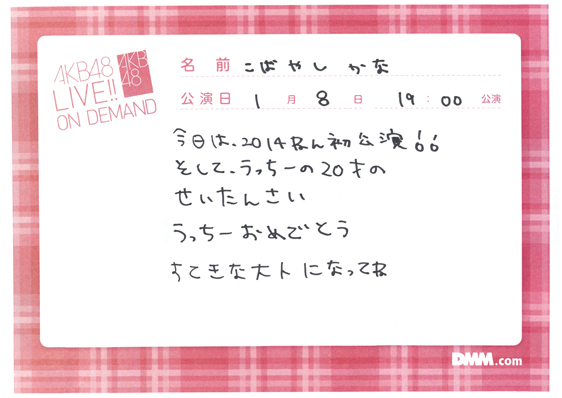 AKB48
LIVE!!
ON DEMAND
AKB
48
名 前 こばやし かな
公演日 1 月 8 日 19 : 00 公演
今日は、2014ねん初公演!!
そして、うっちーの20才の
せいたんさい
うっちーおめでとう
すてきな大人になってね
DMM.com